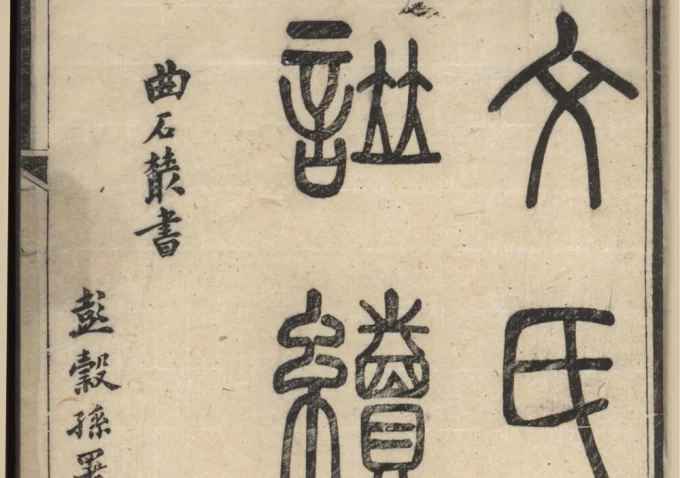 文氏
譜續
曲石叢書
彭穀孫署